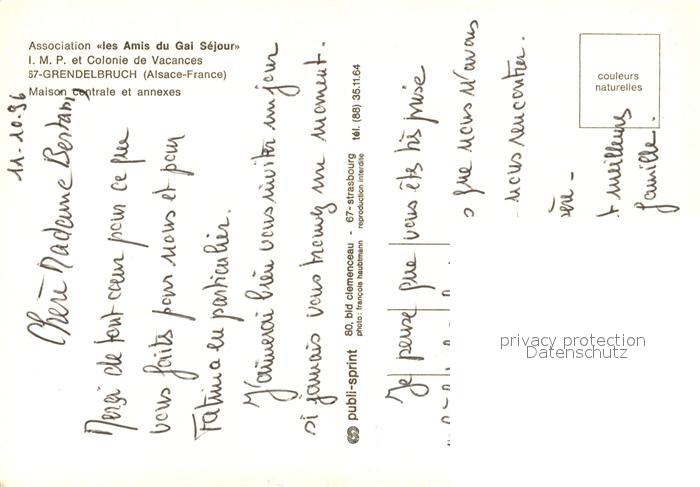 Association «les Amis du Gai Séjour»
I. M. P. et Colonie de Vacances
67-GRENDELBRUCH (Alsace-France)
Maison centrale et annexes
11-10-96
Chère Madame
Merçi de tout cœur pour ce que
vous faits pour nous et pour
Fatima en particulier.
J'aimerai bien vous inviter un jour
si jamais vous trouvez un moment.
publi-sprint 80, bld clemenceau - 67-strasbourg tél. (88) 35.11.64
photo: françois haubtmann reproduction interdite
Je pense que vous êts très prise
que nous n'avons
nous rencontrer.
meilleurs
famille.
couleurs
naturelles
privacy protection
Datenschutz